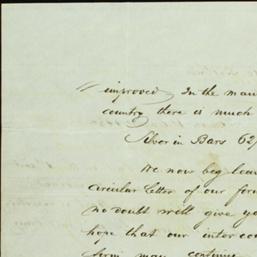 improved. In the man
country there is much
Silver in Bars 62/
We now beg leav
circular letter of our form
no doubt will give yo
hope that our intercou
form may continue